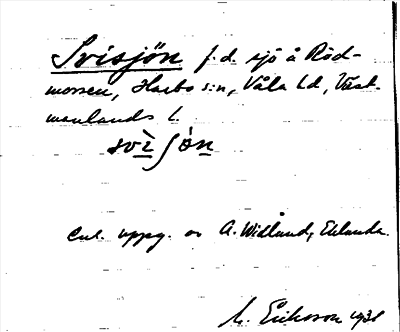 Svisjön f.d. sjö å Röd-
mossen, Harbo s:n, Våla hd, Väst-
manlands l.
svìʃön
Enl. uppg. av A. Widlund, Eklunda.
M. Eriksson 1931